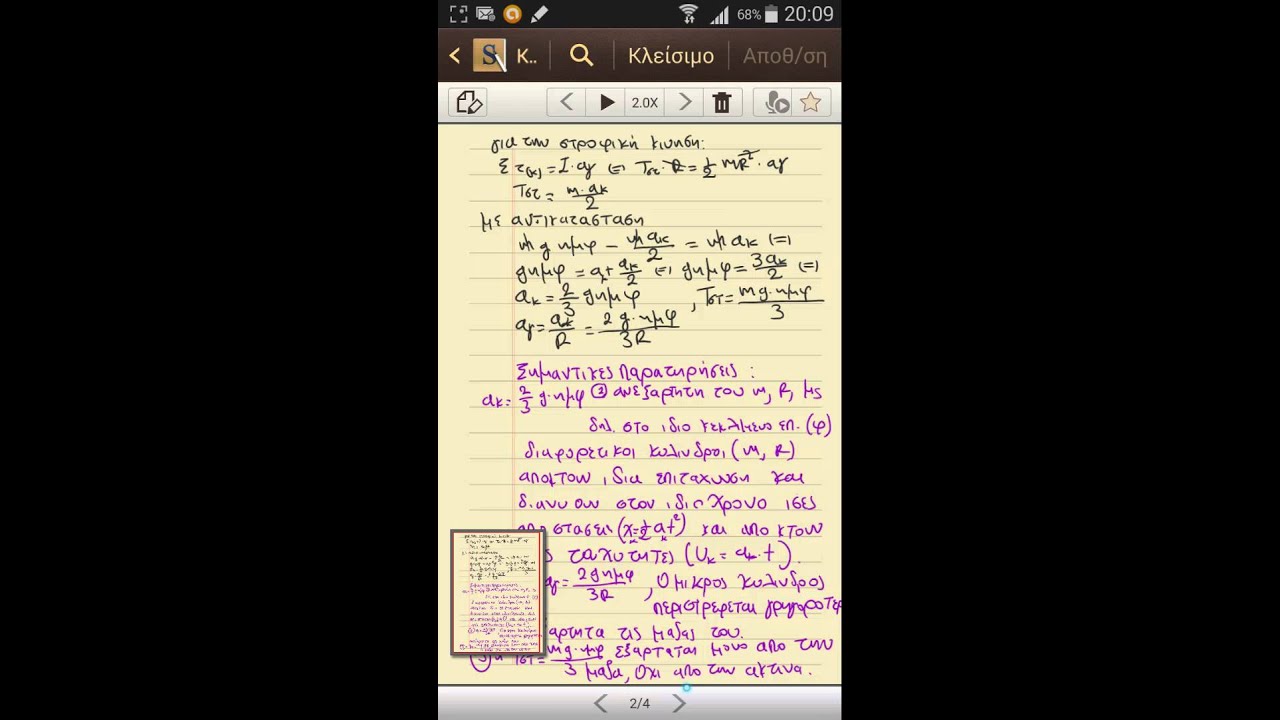 68% 20:09
S Κ.. Κλείσιμο Αποθ/ση
2.0X
για την στροφική κινηση:
Στ(κ) = Ι·αγ ⇔ Τστ·R = 1/2 mR²·αγ
Τστ = m·ακ/2
με αντικατασταση
mgημφ − mακ/2 = mακ ⇔
gημφ = ακ + ακ/2 ⇔ gημφ = 3ακ/2 ⇔
ακ = 2/3 gημφ , Τστ = mg·ημφ/3
αγ = ακ/R = 2g·ημφ/3R
Σημαντικες Παρατηρήσεις :
ακ = 2/3 g·ημφ ① ανεξαρτητη του m, R, με
δηλ. στο ιδιο κεκλιμενο επ. (φ)
διαφορετικοι κυλινδροι (m, R)
αποκτουν ιδια επιταχυνση και
διανυουν στον ιδιο χρονο ισες
αποστασεις (xκ=1/2 ακt²) και αποκτουν
ταχυτητες (Uκ = ακ·t).
αγ = 2gημφ/3R , Ο μικρος κυλινδρος
περιστρεφεται γρηγοροτερ
τις μαζας του.
Τστ = mg·ημφ/3 εξαρταται μονο απο την
μαζα, όχι απο την ακτινα.
2/4